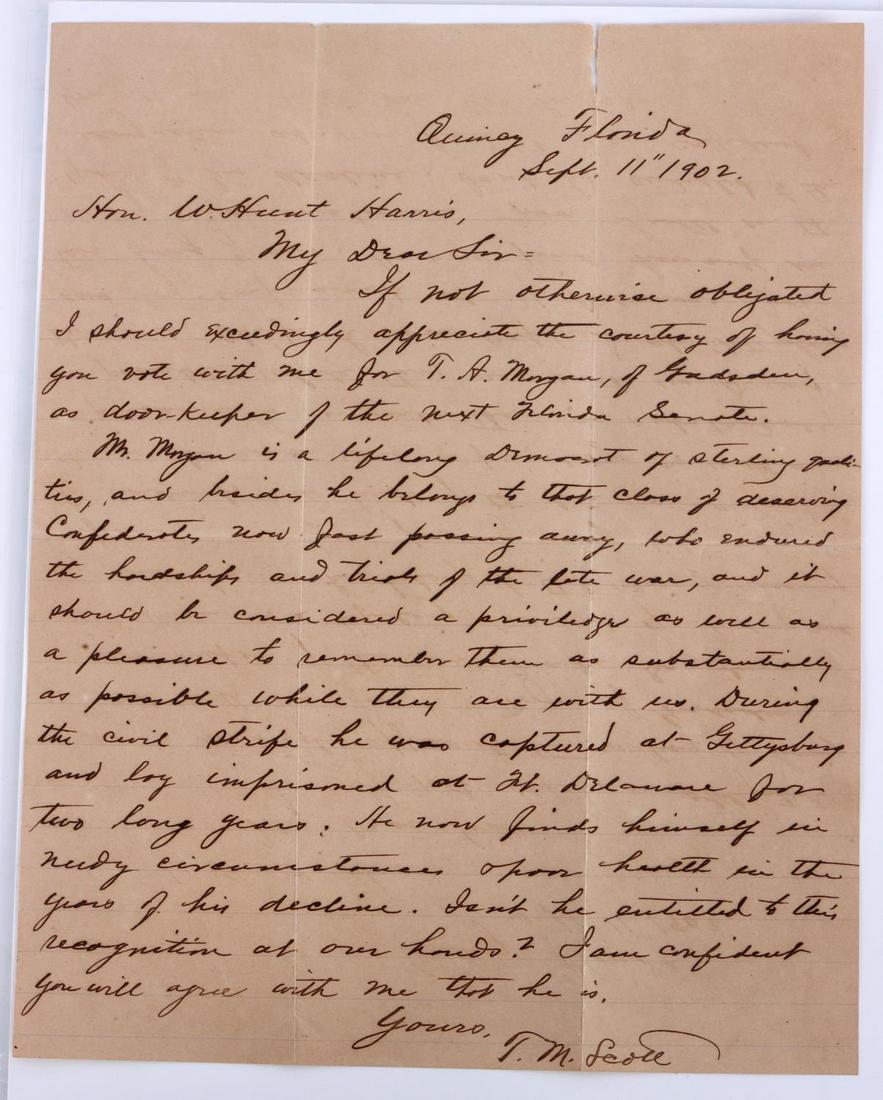 Quincy Florida
Sept. 11" 1902.
Hon. W. Hunt Harris,
My Dear Sir =
If not otherwise obligated
I should exceedingly appreciate the courtesy of having
you vote with me for T. A. Morgan, of Gadsden,
as door-keeper of the next Florida Senate.
Mr. Morgan is a lifelong Democrat of sterling quali-
ties, and besides he belongs to that class of deserving
Confederates now fast passing away, who endured
the hardships and trials of the late war, and it
should be considered a priviledge as well as
a pleasure to remember them as substantially
as possible while they are with us. During
the civil strife he was captured at Gettysburg
and lay imprisoned at Ft. Delaware for
two long years. He now finds himself in
needy circumstances & poor health in the
years of his decline. Isn't he entitled to this
recognition at our hands? I am confident
you will agree with me that he is.
Yours,
T. M. Scott